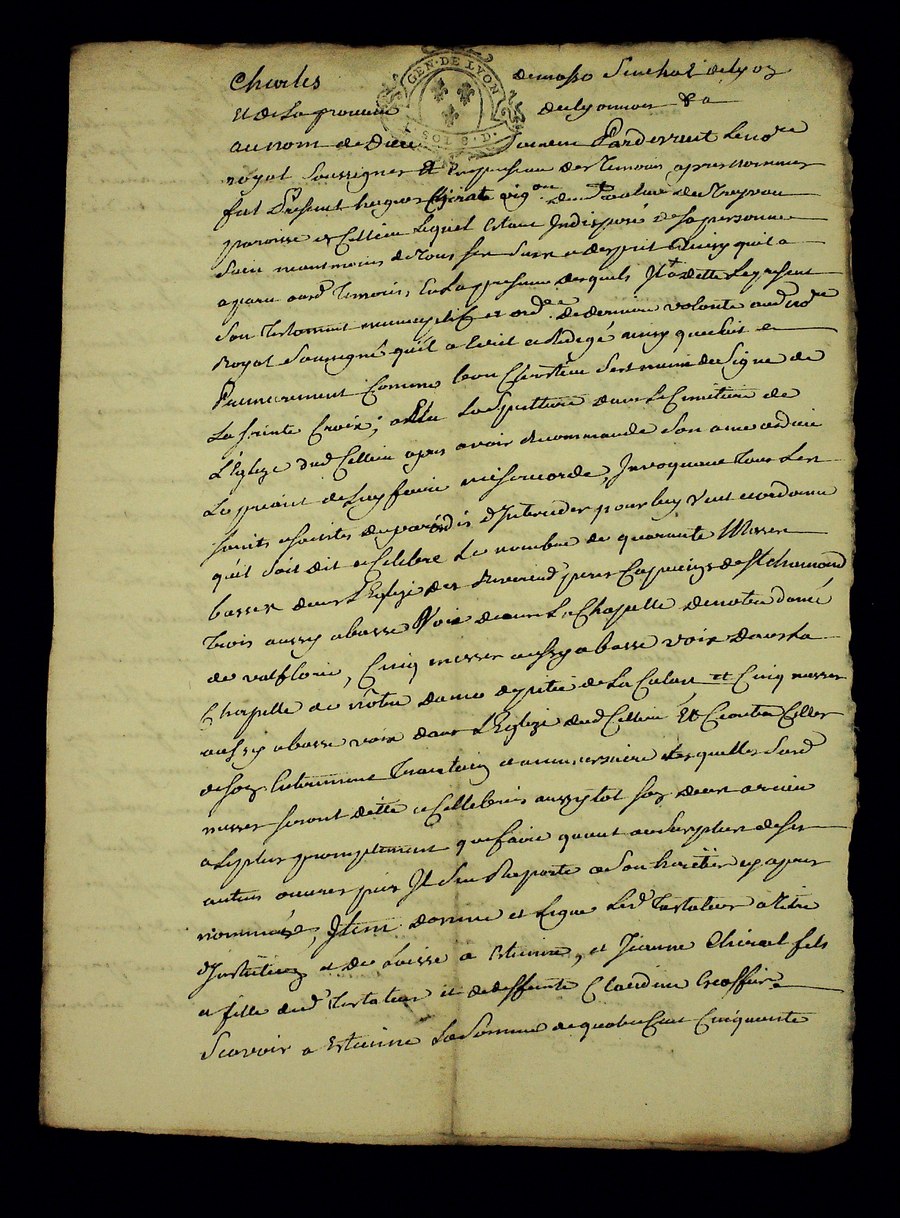 Charles
GEN · DE LYON
SOLS · D ·
de masso Senechal de lyon
Et de La province
du lyonnois & a
au nom de Dieu
pardevant Le no.re
royal soussigné Et En presence des Temoins apres nommes
fut present hugues Chirat vig.on du
parroisse de Cellieu Lequel Estant Indisposé de sa personne
sain neantmoins de tous ses sens et desprit Ainsy quil a
aparu aud. Temoins, En La presence desquels Il a dicté Le present
son Testament nuncupatif et ord.ce de derniere volonté aud. no.re
Royal soussigné quil a Ecrit et Redigé ainsy que suit
Premierement Comme bon Chrestien sest muni du Signe de
La sainte Croix, a Elu La Sepulture dans Le Cimetiere de
L'Eglize dud. Cellieu apres avoir Recommandé son ame a dieu
Le priant de Luy faire misericorde, Invoquant Tous Les
saints et saintes du paradis d'Interceder pour luy veut et ordonne
quil soit dit et Celebré Le nombre de quarante Messes
basses dans L'Eglize des Reverend peres Capucins de St. chamond
Trois aussy a basse Voix dans La Chapelle de notre dame
de valfloris, Cinq messes aussy a basse voix dans La
Chapelle de nôtre dame de pitié de La et Cinq messes
aussy a basse voix dans L'Eglize dud. Cellieu Et Celles
de son Enterrement Trentain et anniversaire Lesquelles Susd.
messes seront dittes et Cellebrés aussytot son deces arrivé
et Le plus promptement que faire quant au surplus de ses
autres œuvres pies Il s'en Raporte a son heritier cy apres
nommé, Item donne et Legue Led. Testateur a titre
d'Institution et a Estienne, et Jeanne Chirat fils
et fille dud. Testateur et de deffunte Claudine
Scavoir a Estienne La Somme de quatre Cent Cinquante